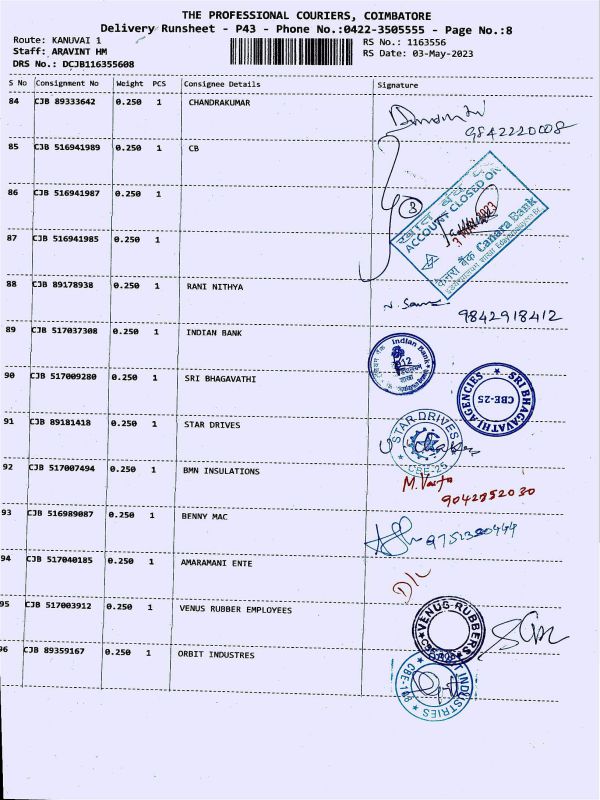 THE PROFESSIONAL COURIERS, COIMBATORE
Delivery Runsheet - P43 - Phone No.:0422-3505555 - Page No.:8
Route: KANUVAI 1
RS No.: 1163556
Staff: ARAVINT HM
RS Date: 03-May-2023
DRS No.: DCJB116355608
S No Consignment No Weight PCS Consignee Details Signature
84 CJB 89333642 0.250 1 CHANDRAKUMAR
9842220008
85 CJB 516941989 0.250 1 CB
86 CJB 516941987 0.250 1
3
ACCOUNT CLOSED ON
Canara Bank
87 CJB 516941985 0.250 1
88 CJB 89178938 0.250 1 RANI NITHYA
9842918412
89 CJB 517037308 0.250 1 INDIAN BANK
Indian Bank
90 CJB 517009280 0.250 1 SRI BHAGAVATHI
SRI BHAGAVATHI AGENCIES
CBE-25
91 CJB 89181418 0.250 1 STAR DRIVES
STAR DRIVES
CBE-25
92 CJB 517007494 0.250 1 BMN INSULATIONS
9042852030
93 CJB 516989087 0.250 1 BENNY MAC
94 CJB 517040185 0.250 1 AMARAMANI ENTE
D/L
95 CJB 517003912 0.250 1 VENUS RUBBER EMPLOYEES
VENUS RUBBERS
96 CJB 89359167 0.250 1 ORBIT INDUSTRES
INDUSTRIES